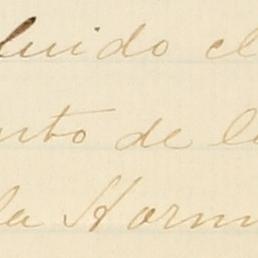 luido el
nto de l
la Horm